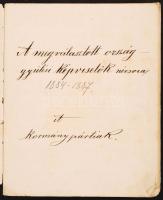 A megválasztott ország-
gyűlési képviselők névsora
1884-1887
Kormánypártiak.